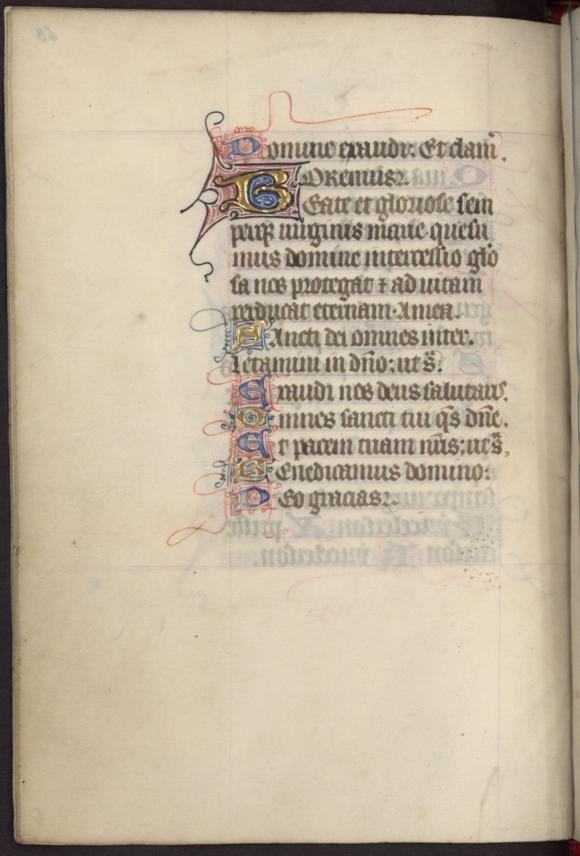 Domine exaudi. Et clam̄.
OREMUS.
Beate et gloriose sem
perqꝫ uirginis marie quesu
mus domine intercessio glo
sa nos protegat ⁊ ad uitam
perducat eternam. Amen.
Sancti dei omnes inter.
Letamini in dño; ut sͣ.
Exaudi nos deus salutaris.
Omnes sancti tui q̄s dñe.
Et pacem tuam nr̄is; ut sͣ.
Benedicamus domino.
Deo gracias.